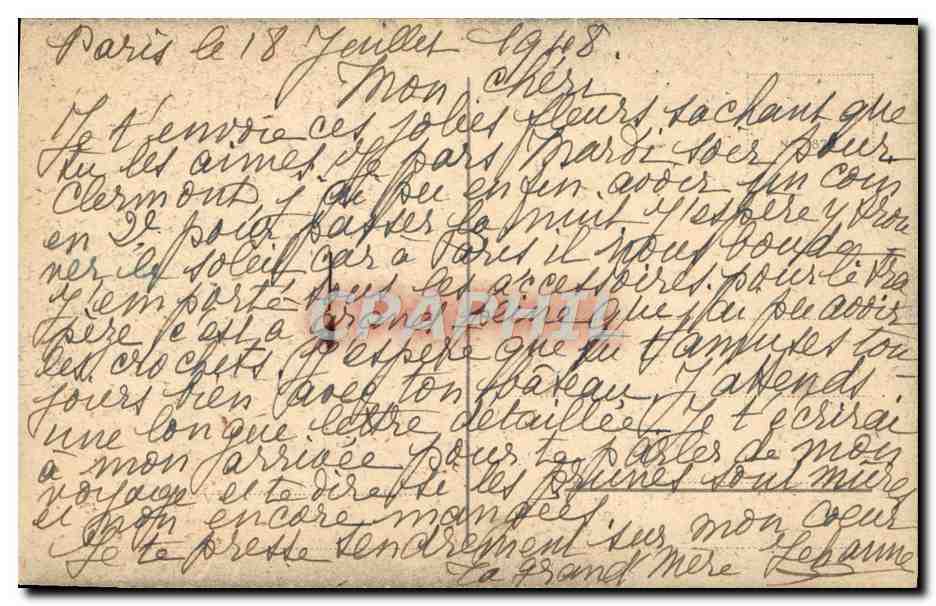 Paris le 18 Juillet 1948.
Mon chéri
Je t'envoie ces jolies fleurs sachant que
tu les aimes. Je pars Mardi soir pour
Clermont, j'ai pu enfin avoir un coin
en 2e pour passer la nuit j'espère y trou
ver le soleil car à Paris il nous boude
J'emporte tous les accessoires pour le tra
pèze c'est à grand peine que j'ai pu avoir
les crochets. J'espère que tu t'amuses tou
jours bien avec ton bateau. J'attends
une longue lettre détaillée. Je t'écrirai
à mon arrivée pour te parler de mon
voyage et te dire si les prunes sont mûres
et non encore mangées
Je te presse tendrement sur mon coeur
Ta grand'Mère Jehanne
CPAPHIL